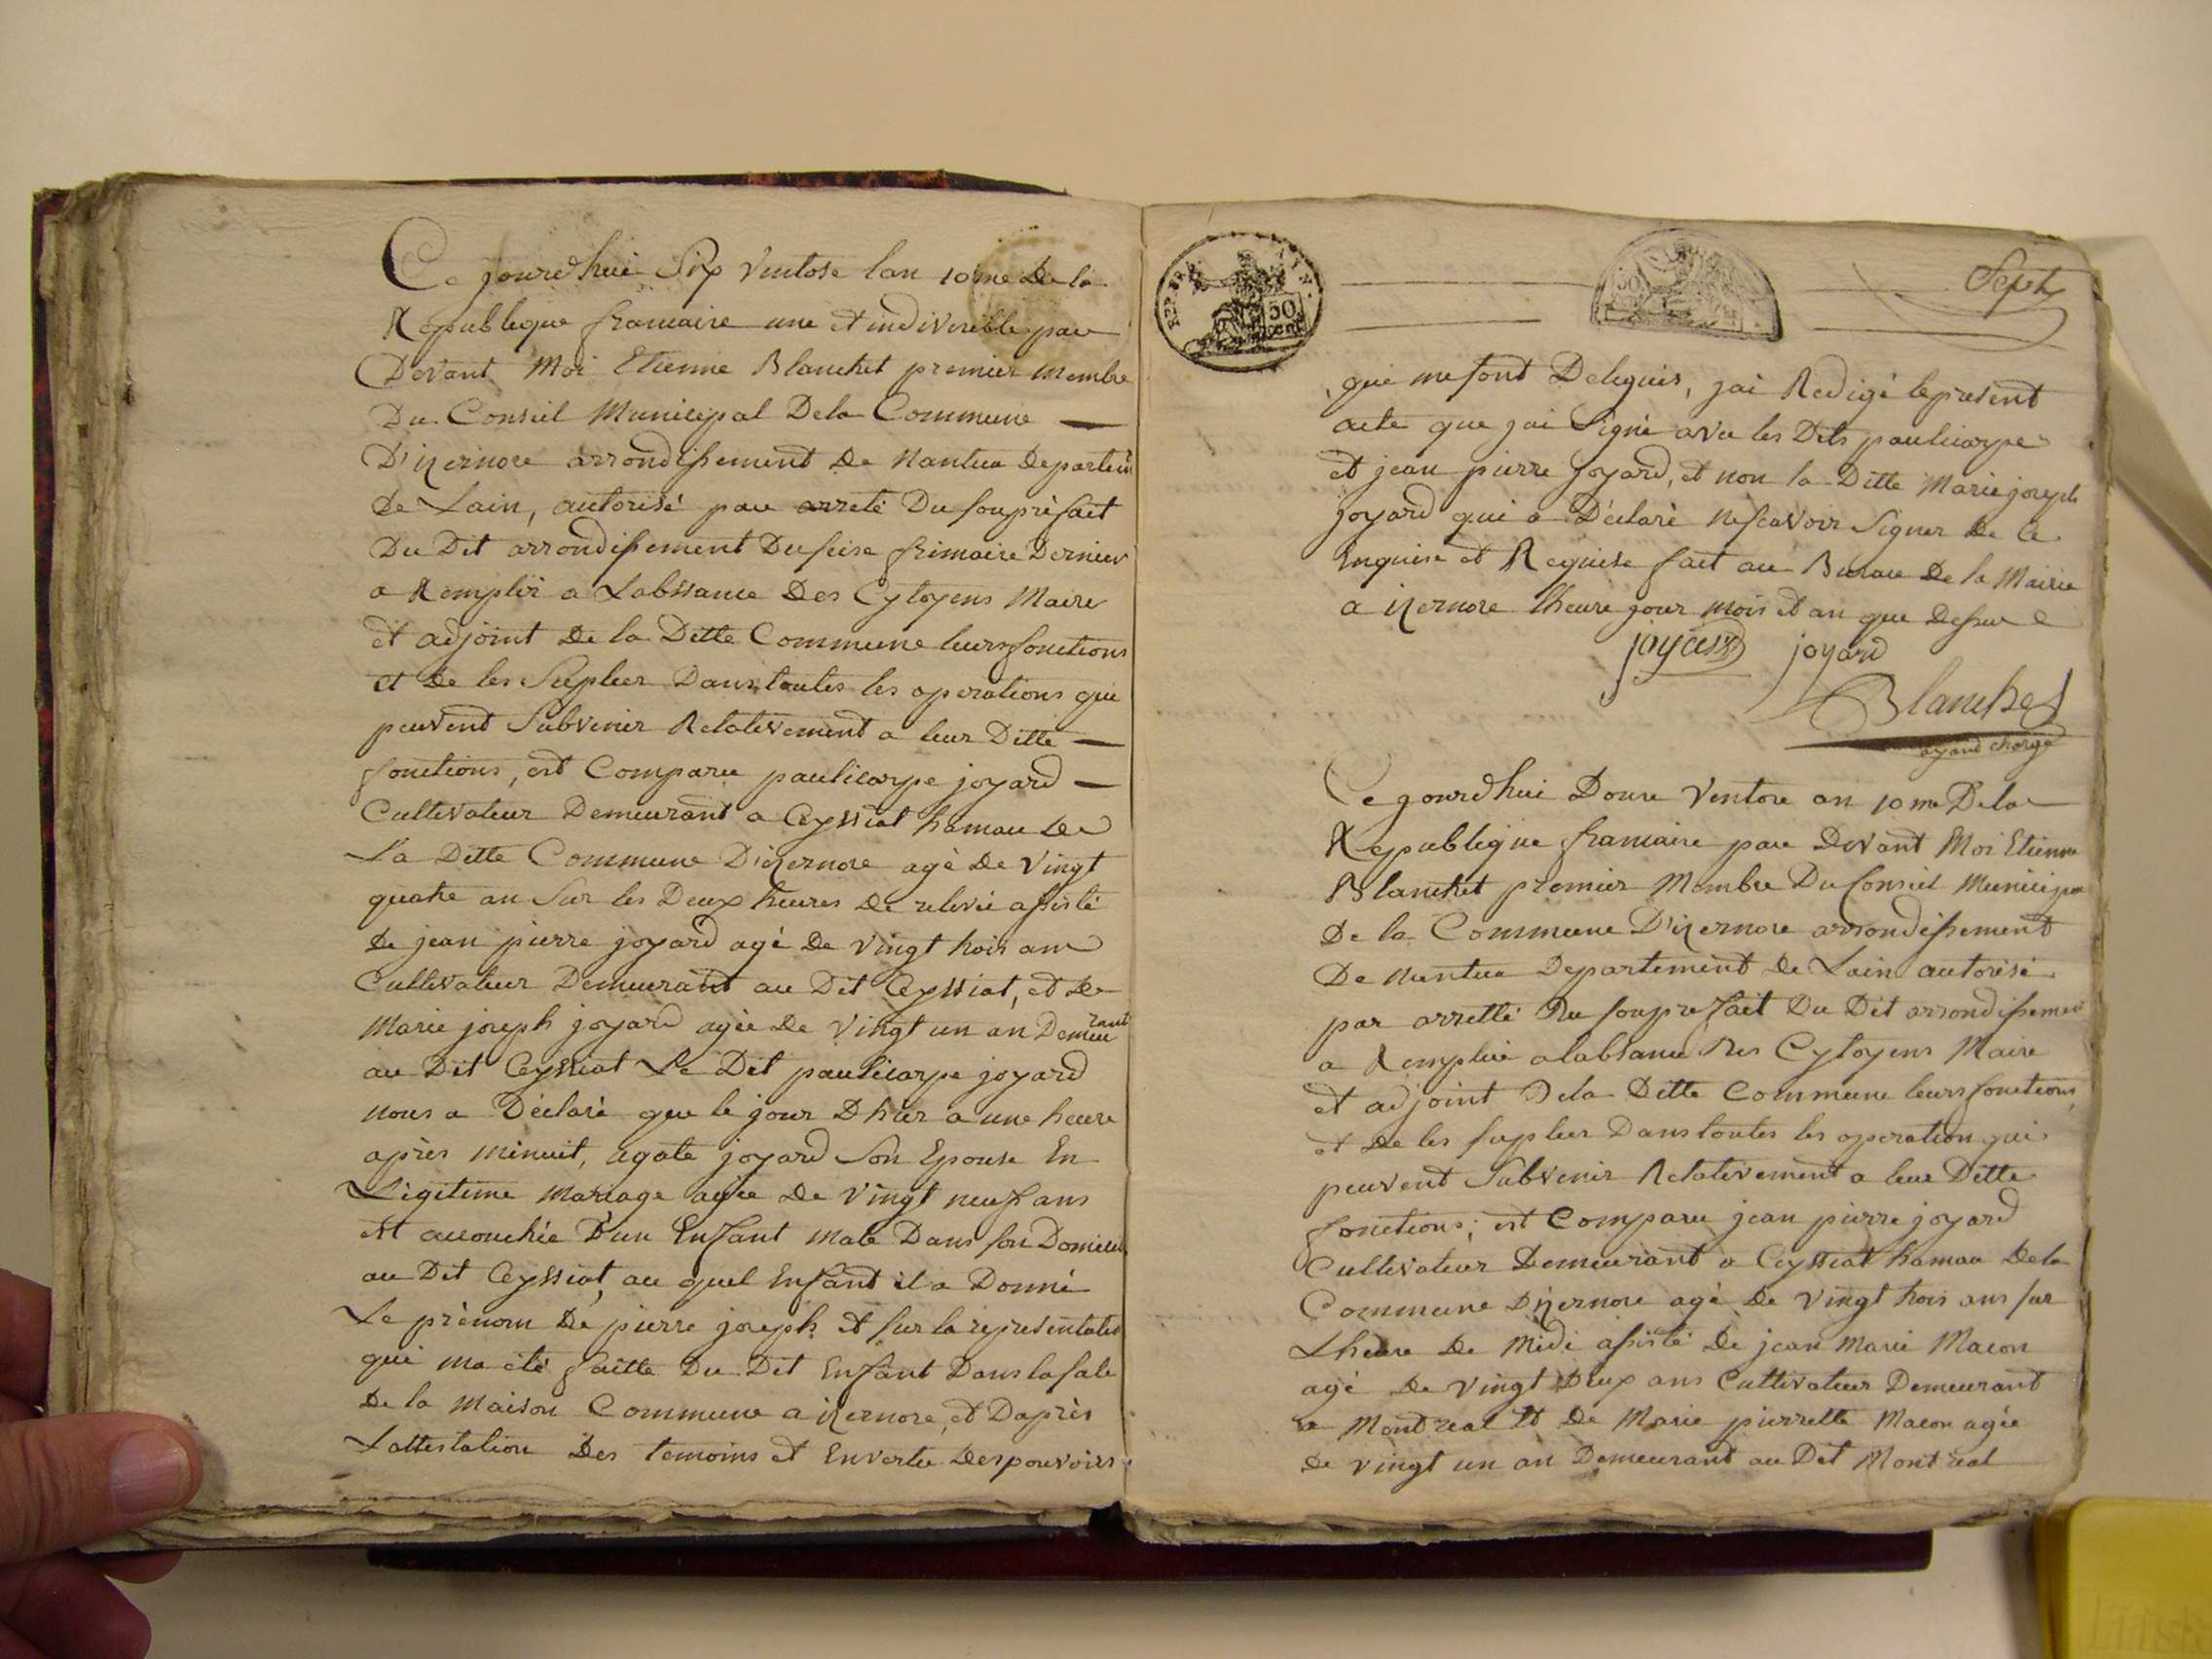 Ce jourdhui Six Ventose lan 10me De la
Republique francaire une et indiverible par
Devant Moi Etienne Blanchet premier membre
Du Conseil Municipal Dela Commune
D'izernore arrondissement De Nantua Departem
De Lain, autorisé par arreté Du souprèfait
Du Dit arrondissement Du seise frimaire Dernier
a Remplir a Labssance Des Cytoyens Maire
et adjoint De la Ditte Commune leurs fonctions
et De les Supleer Dans toutes les operations qui
peuvent Subvenir Relativement a leur Ditte
fonctions, est Comparu paulicarpe joyard
Cultivateur Demeurant a Ceyssiat hamau De
La Ditte Commune D'izernore agé De Vingt
quatre an Sur les Deux heures De relevée assisté
De jean pierre joyard agé De vingt trois ans
Cultivateur Demeurant au Dit Ceyssiat, et De
Marie joseph joyard agée De Vingt un an Demeurant
au Dit Ceyssiat Le Dit paulicarpe joyard
nous a Déclaré que le jour Dhier a une heure
après minuit, agate joyard Son Epouse En
Légitime Mariage agée De Vingt neuf ans
est accouchée D'un Enfant male Dans son Domicile
au Dit Ceyssiat, au quel Enfant il a Donné
Le prènom De pierre joseph et sur la représentation
qui ma été faitte Du Dit Enfant Dans la sale
De la Maison Commune a izernore, et Daprès
Lattestation Des temoins et En vertu Des pouvoirs
Sept
50
qui me sont Delegués, jai Redigé le present
acte que jai Signé avec les Dits paulicarpe
et jean pierre joyard, et non la Ditte Marie joseph
joyard qui a Déclaré ne scavoir Signer De ce
Enquise et Requise fait au Bureau De la Mairie
a izernore lheure jour mois et an que Dessus
joyard joyard
Blanchet
ayant charge
Ce jourdhui Douze Ventose an 10me Dela
Republique francaire par Devant Moi Etienne
Blanchet premier Membre Du Conseil Municipa
De la Commune D'izernore arrondissement
De Nantua Departement De Lain autorisé
par arretté Du souprefait Du Dit arrondissement
a Remplir a labsance Des Cytoyens Maire
et adjoint Dela Ditte Commune leurs fonctions,
et De les supleer Dans toutes les operation qui
peuvent Subvenir Relativement a leur Ditte
fonctions; est Comparu jean pierre joyard
Cultivateur Demeurant a Ceyssiat hamau Dela
Commune Dizernore agé De Vingt trois ans sur
Lheure De Midi assisté De jean Marie Macon
agé De Vingt Deux ans Cultivateur Demeurant
a Montreal et De Marie pierrette Macon agée
De Vingt un an Demeurant au Dit Montreal